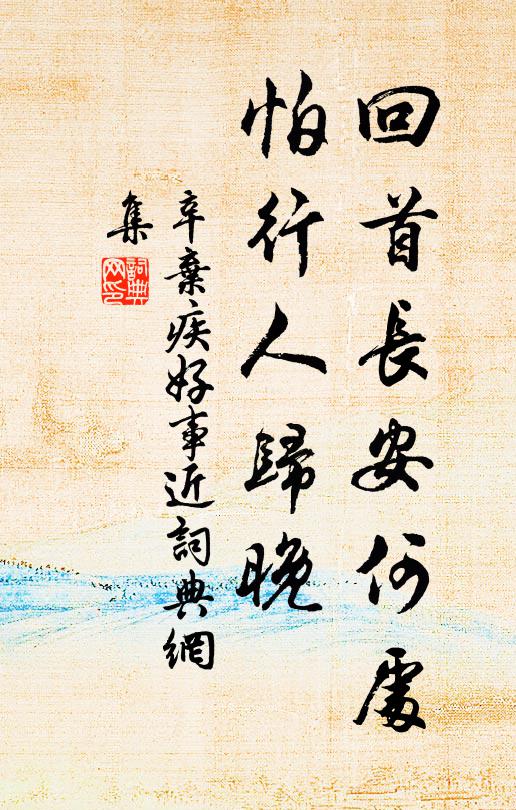 回首長安何處
怕行人歸晚
辛棄疾好事近詞典網
集
詞典
网印